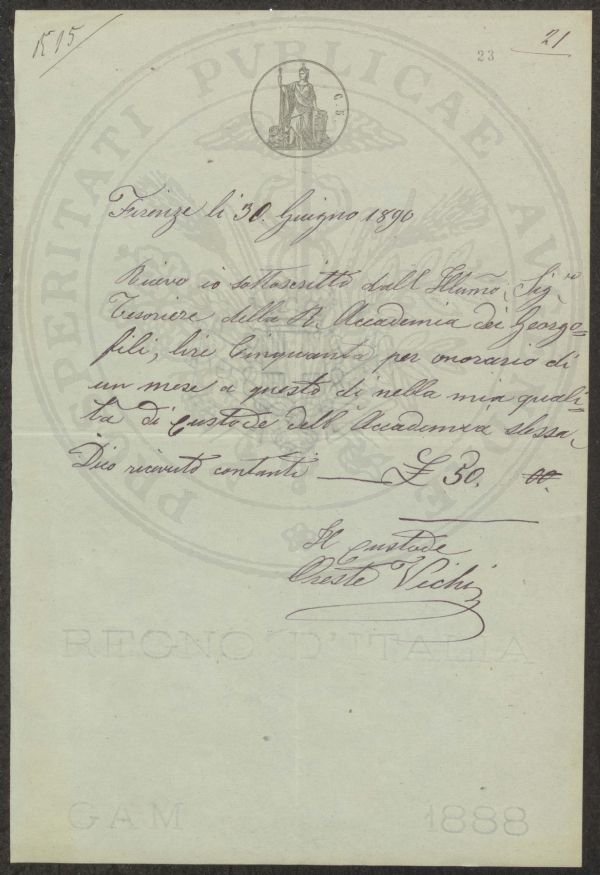 21
23
PROSPERITATI PVBLICAE AVGENDAE
C. 5.
Firenze li 30. Giugno 1890
Ricevo io sottoscritto dall Illumo. Sig.re
Tesoriere della R. Accademia dei Georgo=
fili, lire Cinquanta per onorario di
un mese a questo dì nella mia quali=
tà di Custode dell'Accademia stessa.
Dico ricevuto contanti — £ 50. 00.
Il Custode
Oreste Vichi
REGNO D'ITALIA
GAM 1888